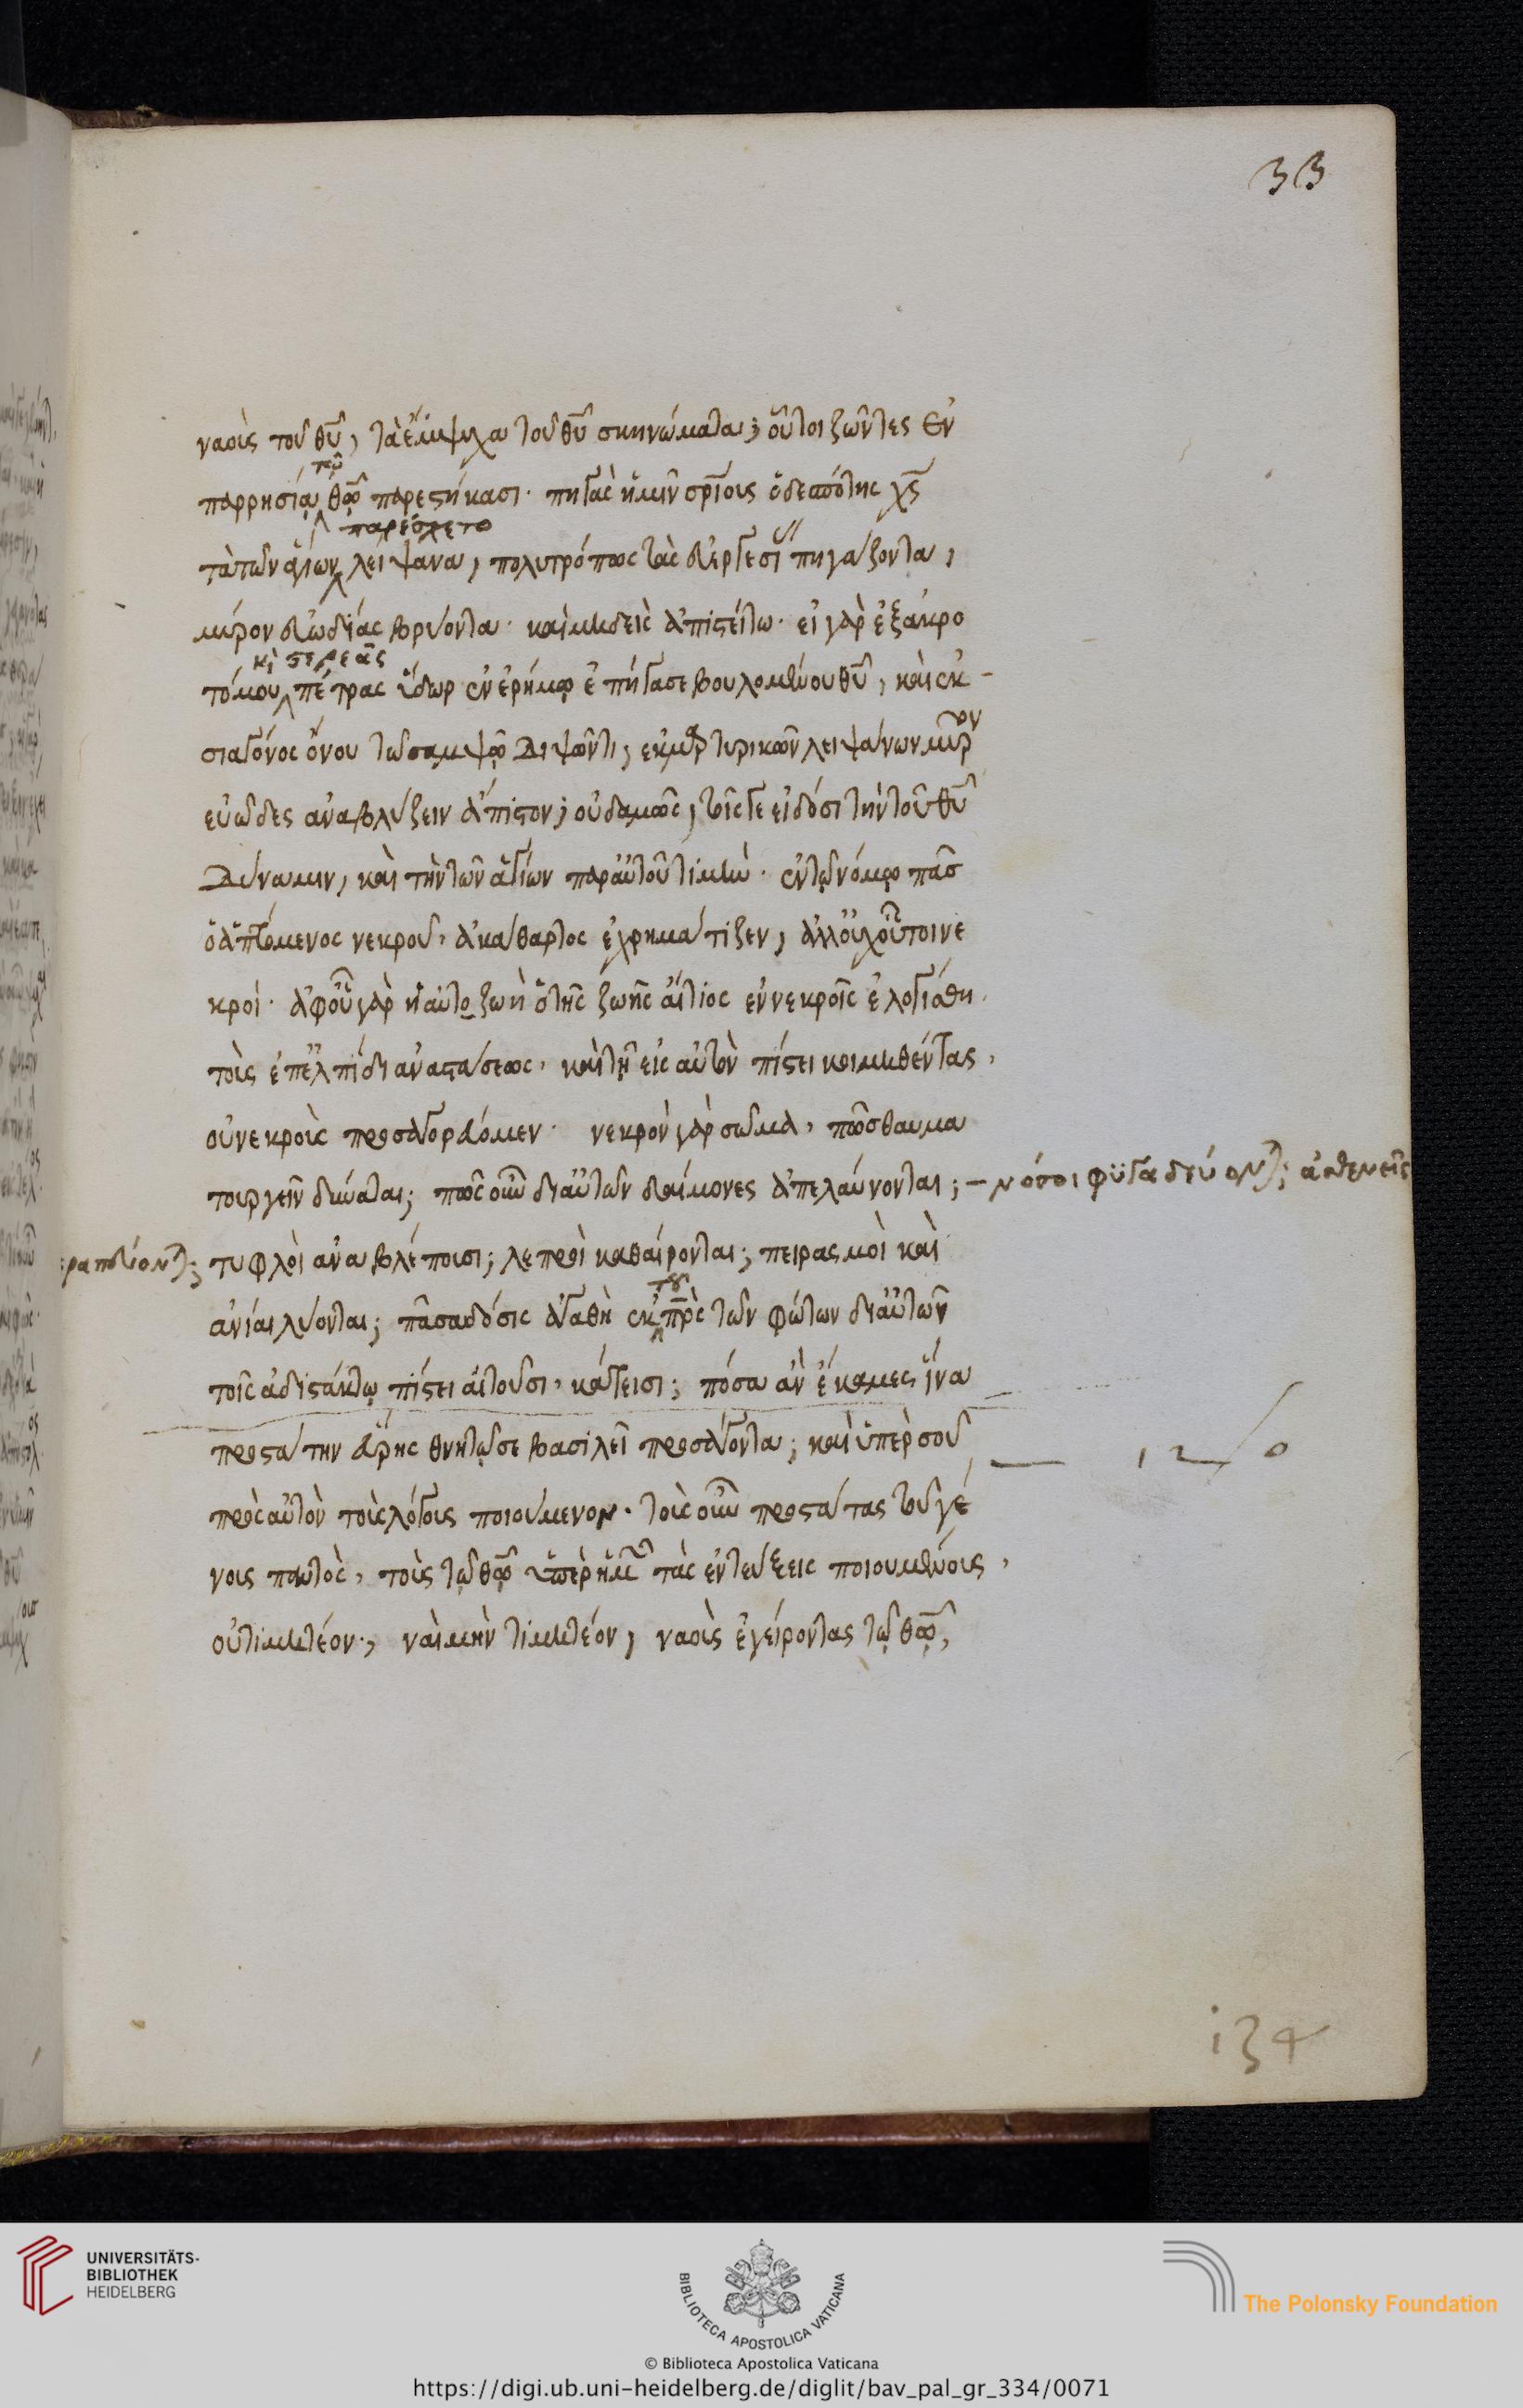 33
ναοὺς τοῦ θ̅υ̅, τὰ ἔμψυχα τοῦ θ̅υ̅ σκηνώματα; οὗτοι ζῶντες ἐν
τῶ
παρρησίᾳ θ̅ῶ̅ παρεστήκασι· πηγὰς ἡμῖν σ̅ρ̅ίους ὁ δεσπότης χ̅ς̅
παρέσχετο
τὰ τῶν ἁγίων λείψανα, πολυτρόπως τὰς εὐεργεσί πηγάζοντα,
μύρον εὐωδίας βρύοντα· καὶ μηδεὶς ἀπιστείτω· εἰ γὰρ ἐξ ἀκρο
κ στερεᾶς
τόμου πέτρας ὕδωρ ἐν ἐρήμῳ ἐπήγασε βουλομένου θ̅υ̅, καὶ ἐκ
σιαγόνος ὄνου τῶ σαμψῶ διψῶντι, ἐκ μαρτυρικῶν λειψάνων μύρον
εὐῶδες ἀναβλύζειν ἄπιστον; οὐδαμῶς, τοῖς γε εἰδόσι τὴν τοῦ θ̅υ̅
δύναμιν, καὶ τὴν τῶν ἁγίων παρ αὐτοῦ τιμὴν· ἐν τῷ νόμῳ πᾶσ
ὁ ἁπτόμενος νεκροῦ, ἀκάθαρτος ἐχρημάτιζεν, ἀλλ οὐχ οὗτοι νε
κροί· ἀφ οὗ γὰρ ἡ αὐτοζωὴ ὁ τῆς ζωῆς αἴτιος ἐν νεκροῖς ἐλογίσθη
τοὺς ἐπ ἐλπίδι ἀναστάσεως, καὶ τῇ εἰς αὐτὸν πίστει κοιμηθέντας,
οὐ νεκροὺς προσαγορεύομεν· νεκρὸν γὰρ σῶμα, πῶς θαυμα
τουργεῖν δύναται; πῶς οὖν δι αὐτῶν δαίμονες ἀπελαύνονται; – νόσοι φυγαδεύοντ; ἀσθενεῖς
εραπεύοντ; τυφλοὶ ἀναβλέπουσι; λεπροὶ καθαίρονται; πειρασμοὶ καὶ
τοῦ
ἀνίαι λύονται; πᾶσα δόσις ἀγαθὴ ἐκ π̅ρ̅ς τῶν φώτων δι αὐτῶν
τοῖς ἀδιστάκτῳ πίστει αἰτοῦσι, κάτεισι; πόσα ἂν ἔκαμες ἵνα
προστάτην εὕρῃς θνητῷ σε βασιλεῖ προσάγοντα; καὶ ὑπὲρ σοῦ
πρὸς αὐτὸν τοὺς λόγους ποιούμενον· τοὺς οὖν προστάτας τοῦ γέ
νους παντὸς, τοὺς τῷ θ̅ῶ̅ ὑπὲρ ἡμ τὰς ἐντεύξεις ποιουμένους,
οὐ τιμητέον, ναὶ μὴν τιμητέον, ναοὺς ἐγείροντας τῷ θ̅ῶ̅,
134
UNIVERSITÄTS-
BIBLIOTHEK
HEIDELBERG
BIBLIOTECA APOSTOLICA VATICANA
The Polonsky Foundation
© Biblioteca Apostolica Vaticana
https://digi.ub.uni-heidelberg.de/diglit/bav_pal_gr_334/0071